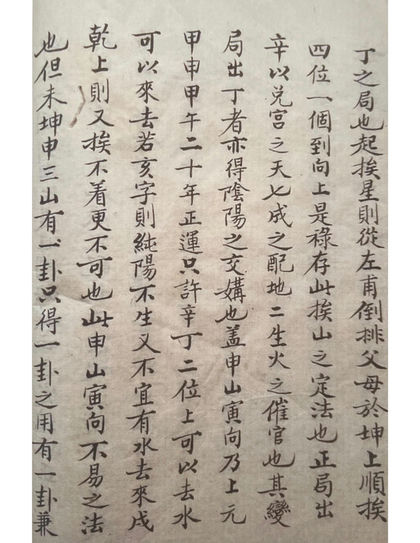 丁之局也起挨星則從左甫倒排父母於坤上順挨
四位一個到向上是祿存此挨山之定法也正局出
辛以兌宮之天七成之配地二生火之催官也其變
局出丁者亦得陰陽之交媾也盖申山寅向乃上元
甲申甲午二十年正運只許辛丁二位上可以去水
可以來去若亥字則純陽不生又不宜有水去來戌
乾上則又挨不着更不可也此申山寅向不易之法
也但未坤申三山有一卦只得一卦之用有一卦兼